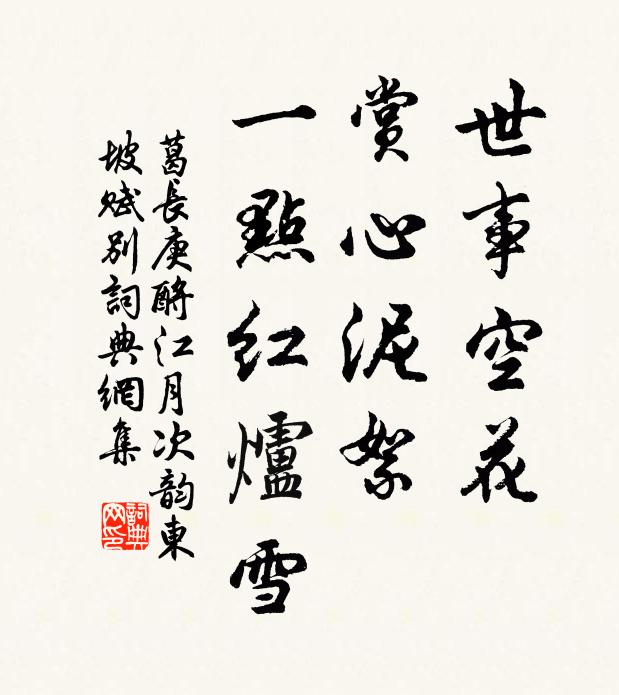 世事空花
賞心泥絮
一點紅爐雪
葛長庚酹江月次韵東
坡賦別詞典網集
詞典网印